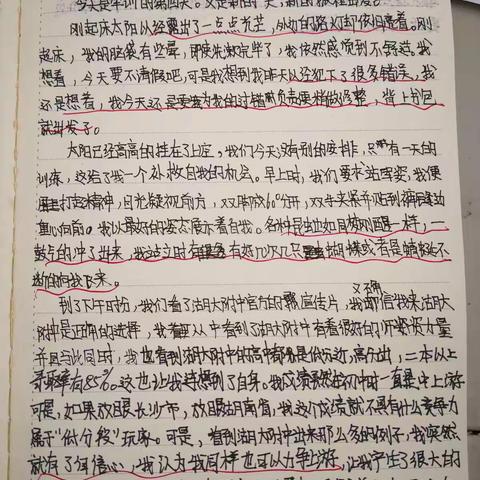 今天是军训的第四天。又是新的一天，新的旅程出发。
刚起床太阳从经露出了一点点光芒，外边的路灯却依旧亮着。刚
起床，我的脑袋有些晕，即使洗漱完毕了，我依然感觉到不舒适。我
想着，今天要不请假吧，可是我想到我昨天从经犯下了很多错误，我
还是想着，我今天还是要为我的过错所负责要稍做修整，背上书包，
就出发了。
太阳已经高高的挂在了上空，我们今天没有别的安排，只有一天的
训练，这给了我一个补救自我的机会。早上时，我们要求站军姿，我便
打起精神，目光凝视前方，双脚成60°分开，双手夹紧并贴到裤
重心向前。我以最好的姿态展示着自我。各种昆虫如刚刚睡醒一样，一
点的冲了出来，我站立时有好几次几只蝴蝶或者是蜻蜓不
断的向我飞来。
到了下午时分，我们看了湖大附中官方的宣传片，我又再确信我来湖大
附中是正确的选择，我从中看到了湖大附中有着很好的师资力量
并且与此同时，我也看到湖大附中的高中都是低分进，高分出，二本以上
录取率有85%。这也让我联想到了自身。我成绩虽然在初中时一直是中上游
可是，如果放眼长沙市，放眼湖南省，我这个成绩就不具有什么竞争力
属于“低分段”玩家。可是，看到湖大附中出来那么多的例子，我突然
就有了自信心，我认为我同样也可以力争上游，让我产生了很大的